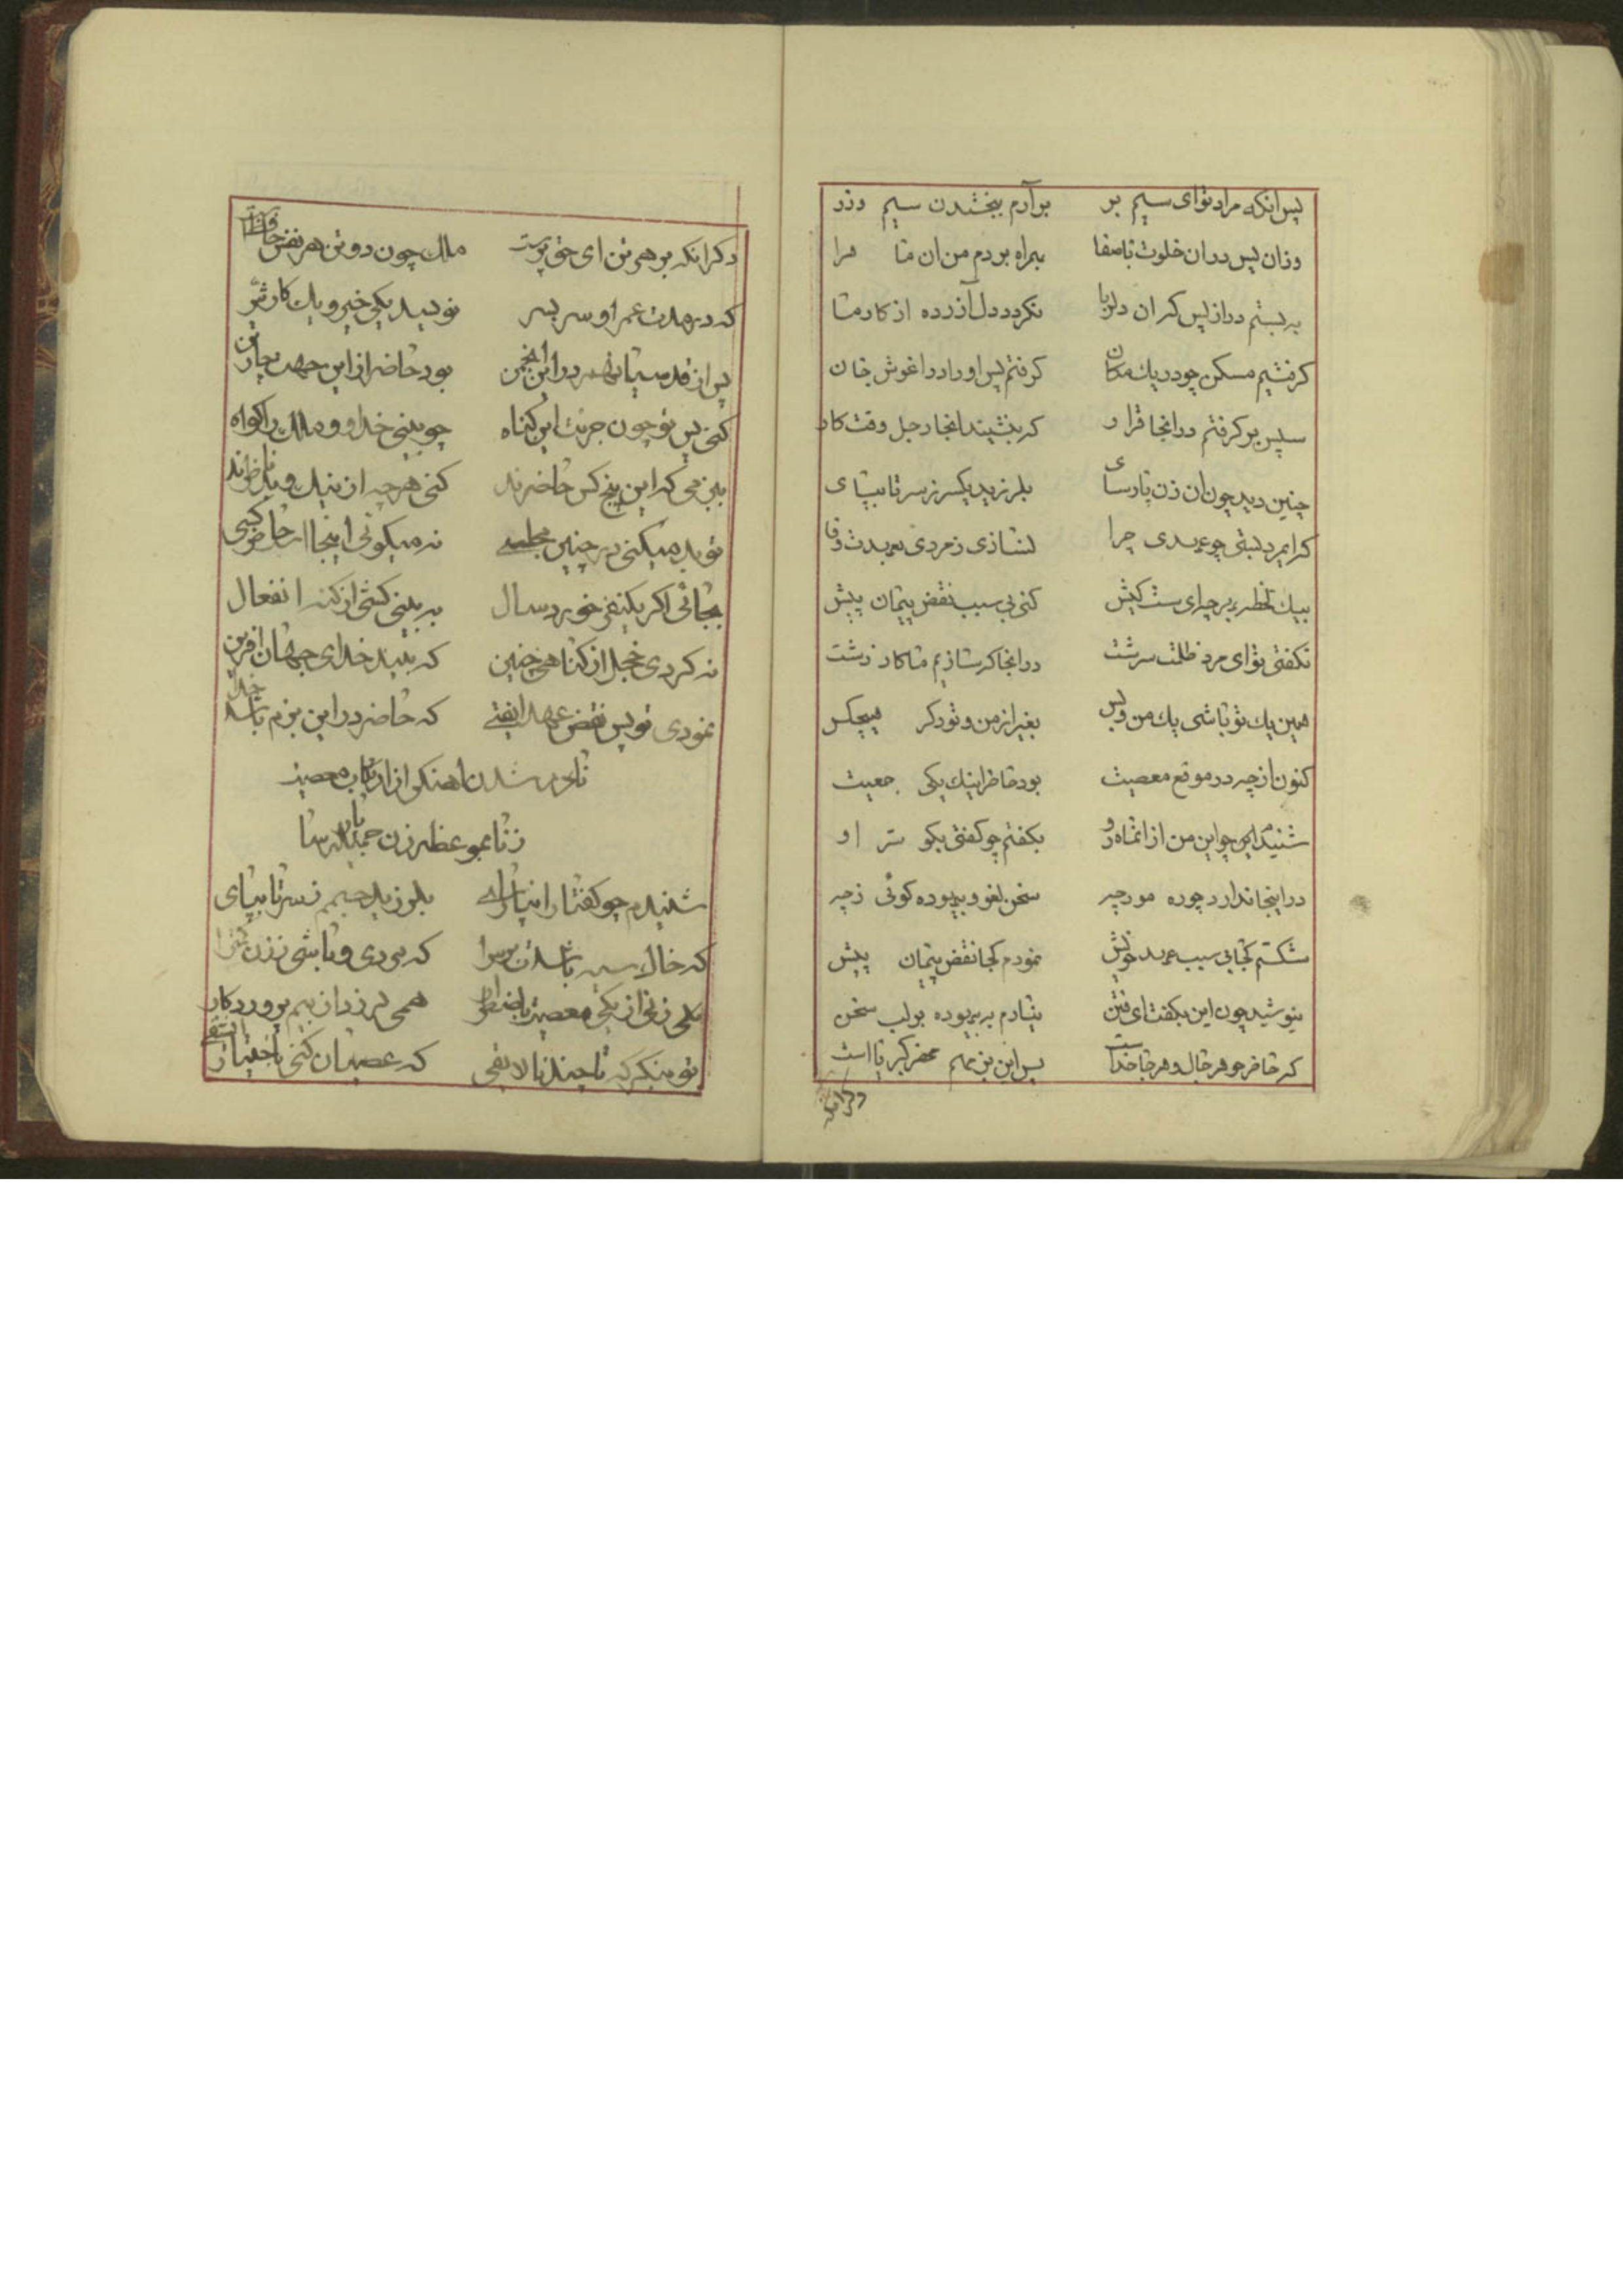 پس انکه مراد توای سیم بر برآرم ببخشدن سیم وزر
وزان پس دران خلوت باصفا ببراه بردم من ان ما مرا
به بستم دراز پس کران دلربا نکردد دل آزرده از کار ما
کرفتیم مسکن چو در یك مکان کرفتم پس اورا دراغوش جان
سپس بر کرفتم درانجا قرار که بنشیند انجا رجل وقت کار
چنین دید چون ان زن پارسای بلرزید یکسر ز سر تا بپای
کرایمرد بستی چو عهدی چرا نسازی ز مردی بعهدت وفا
بیك لحظه برچه ای ست کیش کنی بی سبب نقض پیمان پیش
نکفتی توای مرد ظلمت سرشت درانجا که سازیم ما کار زشت
همین یك تو باشی یك من وبس بغیر از من و تو دکر هیچکس
کنون از چه در موقع معصیت بود حاضر اینك یکی جمعیت
شنیدم چو این من از انماه رو بکفتم چو کفتی بکو سر او
در اینجا ندارد چو ره مور چه سخن لغو و بیهوده کوئی زچه
شکستم کجا بی سبب عهد خویش نمودم کجا نقض پیمان پیش
نیوشید چون این بکفت ای فتن بیارم به بیهوده بر لب سخن
که حاضر چو هر حال و هر جا خداست پس این بزم هم محضر کبریا است
دکر انکه
دکر انکه بر هر تن ای حق پرست ملك چون دو تن هر نفس حافظ است
که در مدت عمر او سر بسر نویسد یکی خیر و یك کار شر
پس از قدسیان هم در این انجمن بود حاضر از این جهت چار تن
کنی پس تو چون جرئت این کناه چو بینی خدا و ملك را کواه
ببین می که این پنج کس حاضرند کنی هر چه از نیك و بد ناظرند
تو بد میکنی در چنین مجلسی نه میکوئی اینجا است حاضر کسی
بجائی اکر یکنفر خورد سال به بینی کشی از کنه انفعال
نه کردی خجل از کناهی چنین که بیند خدای جهان افرین
نمودی تو پس نقض عهد ایفتی که حاضر در این بزم باشد خدا
نادم شدن اهنکر از ارتکاب معصیت
زنا بموعظه زن جمیله پارسا
شنیدم چو کفتار انپارسای بلرزید جسمم ز سر تا بپای
که خاك سیه باشدت بر سرا که مردی و باشی ز زن کمترا
یکی زن از یکی معصیت باضطرار همی لرزد از بیم پروردکار
تو بنکر که تا چند نالایقی که عصیان کنی باختیار ایشقی